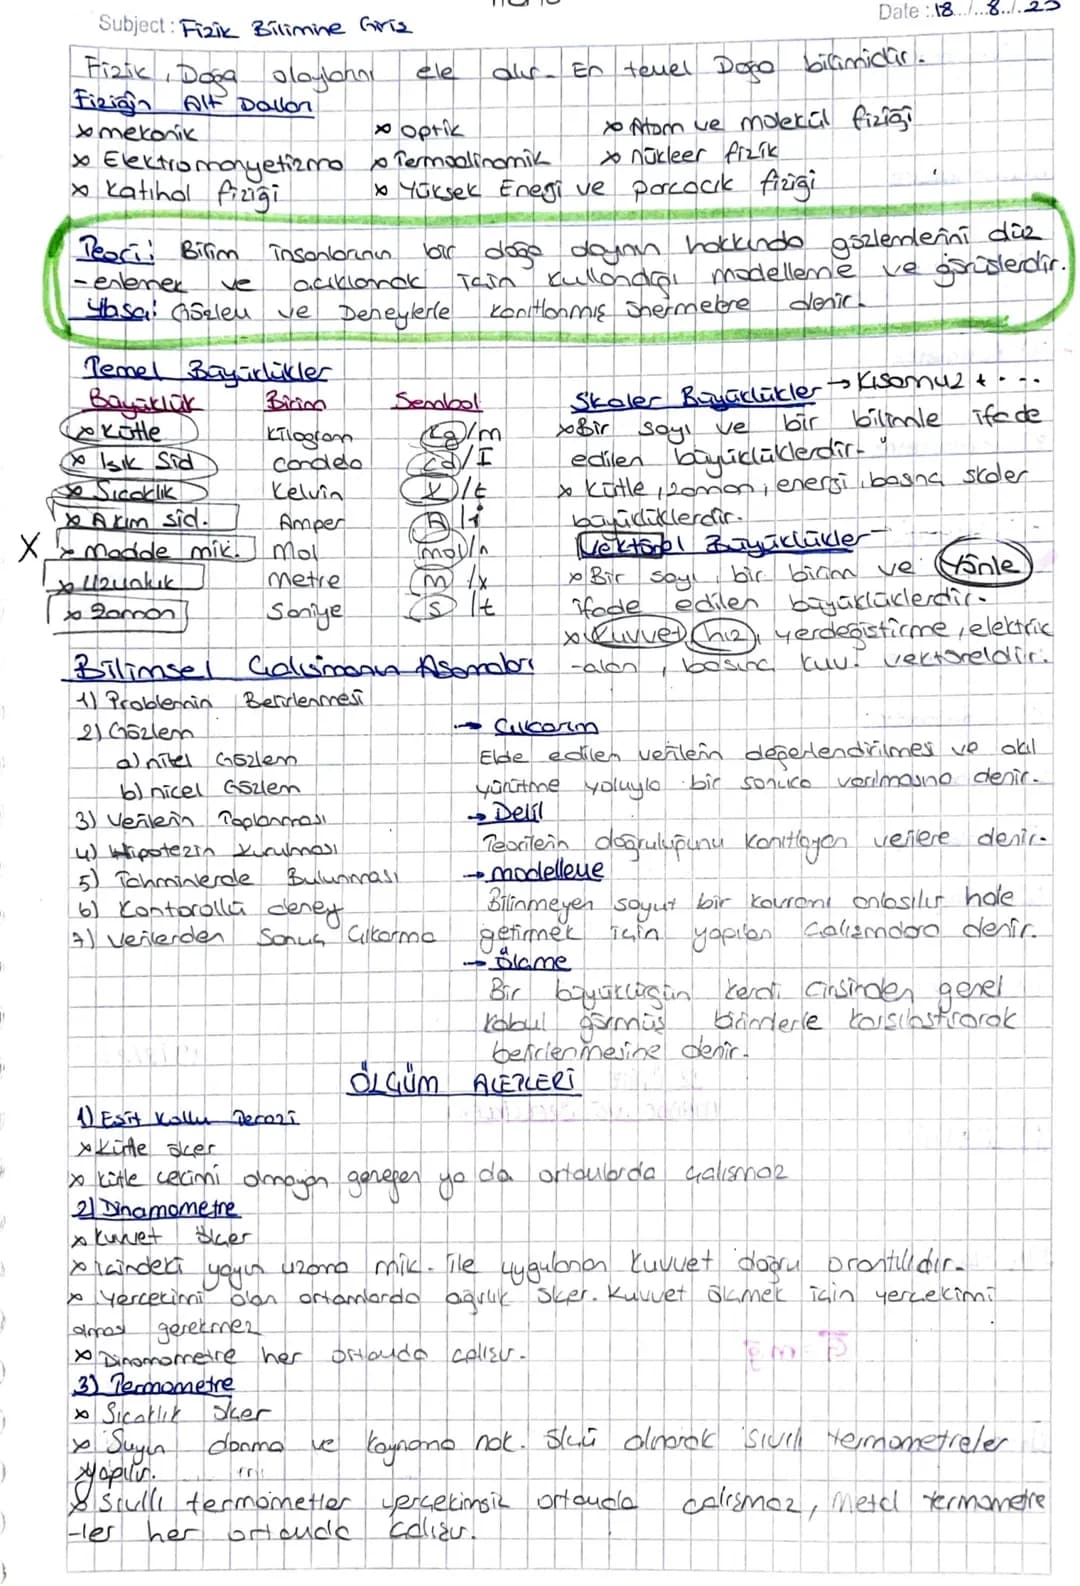 Subject: Fizik Bilimine Giriş
Date: 18.../...8../.23
Fizik, Doğa olaylarını ele alır. En temel Doğa bilimidir.
Fiziğin Alt Dalları
x mekanik
x optik
x Atom ve molekül fiziği
x Elektromanyetizma
x Termodinamik
x nükleer fizik
x Katıhal fiziği
x Yüksek Enerji ve parçacık fiziği
Teori: Bilim insanlarının bir doğa olayının hakkında gözlemlerini düz
-enlemek ve açıklamak için kullandığı modelleme ve görüşlerdir.
Yasa: Gözlem ve Deneylerle kanıtlanmış önermelere denir.
Temel Büyüklükler
Büyüklük Birim Sembol
x Kütle Kilogram kg/m
x Işık Şid candela cd/I
x Sıcaklık Kelvin K/t
x Akım şid. Amper A/i
X x madde mik. Mol mol/n
x Uzunluk metre m/x
x Zaman Saniye s/t
Skaler Büyüklükler → Kısamuz + . - .
x Bir sayı ve bir birimle ifade
edilen büyüklüklerdir.
x Kütle, zaman, enerji, basınç skaler
büyüklüklerdir.
Vektörel Büyüklükler
x Bir sayı, bir birim ve Yönle
ifade edilen büyüklüklerdir.
x Kuvvet, hız, yerdeğiştirme, elektrik
-alan, basınç kuv. vektöreldir.
Bilimsel Çalışmanın Aşamaları
1) Problemin Belirlenmesi
2) Gözlem
a) nitel Gözlem
b) nicel Gözlem
3) Verilerin Toplanması
4) Hipotezin Kurulması
5) Tahminlerde Bulunması
6) Kontorollü deney
7) Verilerden Sonuç Çıkarma
→ Çıkarım
Elde edilen verilerin değerlendirilmesi ve akıl
yürütme yoluyla bir sonuca varılmasına denir.
→ Delil
Teorilerin doğruluğunu kanıtlayan verilere denir.
→ modelleme
Bilinmeyen soyut bir kavramı anlaşılır hale
getirmek için yapılan çalışmalara denir.
→ Ölçme
Bir büyüklüğün kendi cinsinden genel
kabul görmüş birimlerle karşılaştırarak
belirlenmesine denir.
ÖLÇÜM ALETLERİ
1) Eşit Kollu Terazi
x Kütle ölçer
x kütle çekimi olmayan gereken ya da ortamlarda çalışmaz
2) Dinamometre
x Kuvvet ölçer
x içindeki yayın uzama mik. ile uygulanan kuvvet doğru orantılıdır.
x Yerçekimi olan ortamlarda ağırlık ölçer. Kuvvet ölçmek için yerçekimi
olması gerekmez
x Dinamometre her ortamda çalışır.
3) Termometre
x Sıcaklık ölçer
x Suyun donma ve kaynama nok. ölçü alınarak sıvılı termometreler
yapılır.
x Sıvılı termometler yerçekimsiz ortamda çalışmaz, Metal termometre
-ler her ortamda çalışır.